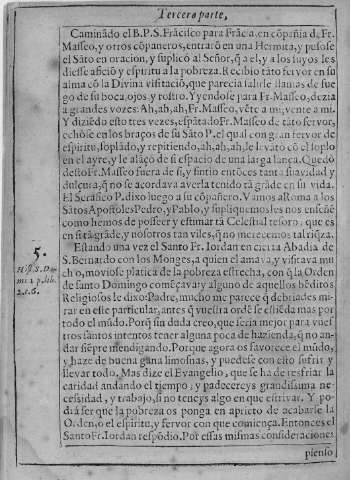 Tercera parte,
Caminãdo el B.P.S. Frãcisco para Frãcia, en cõpañia de Fr.
Masseo, y otros cõpañeros, entrarõ en una Hermita, y pusose
el Sãto en oracion, y suplicò al Señor, q̃ a el, y a los suyos les
diesse afició y espiritu a la pobreza. Recibio tãto fervor en su
alma cõ la Divina visitaciõ, que parecia salirle llamas de fue
go de su boca, ojos, y rostro. Y yendose para Fr. Masseo, dezia
a grandes vozes: Ah, ah, ah, Fr. Masseo, vẽte a mi, vente a mi.
Y diziẽdo esto tres vezes, espãtado Fr. Masseo de tãto fervor,
echòse en los braços de su Sãto P. el qual con gran fervor de
espiritu, soplãdo, y repitiendo, ah, ah, ah, le levãtò cõ el soplo
en el ayre, y le alãçò de si espacio de una larga lança. Quedò
desto Fr. Masseo fuera de si, y sintio entõces tanta suavidad y
dulçura, q̃ no se acordava averla tenido tã grãde en su vida.
El Serafico P. dixo luego a su cõpañero. Vamos a Roma a los
Sãtos Apostoles Pedro, y Pablo, y supliquemosles nos enseñẽ
como hemos de posseer y estimar tã Celestial tesoro, que es
en si tã grãde, y nosotros tan viles, q̃ no merecemos tal riq̃za.
5. Estando una vez el Santo Fr. Iordan en cierta Abadia de
S. Bernardo con los Monges, a quien el amava, y visitava mu
cho, moviose platica de la pobreza estrecha, con q̃ la Orden
de santo Domingo començava; y alguno de aquellos bẽditos
Religiosos le dixo: Padre, mucho me parece q̃ debriades mi-
rar en este particular, antes q̃ vuestra ordẽ se estiẽda mas por
todo el mũdo. Porq̃ sin duda creo, que seria mejor para vues
tros santos intentos tener alguna poca de hazienda, q̃ no an-
dar siẽpre mendigando. Porque agora os favorece el mũdo,
y haze de buena gana limosnas, y puedese con esto sufrir y
llevar todo. Mas dize el Evangelio, que se ha de resfriar la
caridad andando el tiempo; y padecereys grandissima ne-
cessidad, y trabajo, si no teneys algo en que estrivar. Y po-
drá ser que la pobreza os ponga en aprieto de acabarse la
Orden, ò el espiritu, y fervor con que comiença. Entonces el
Santo Fr. Iordan respõdio. Por essas mismas consideraciones
pienso